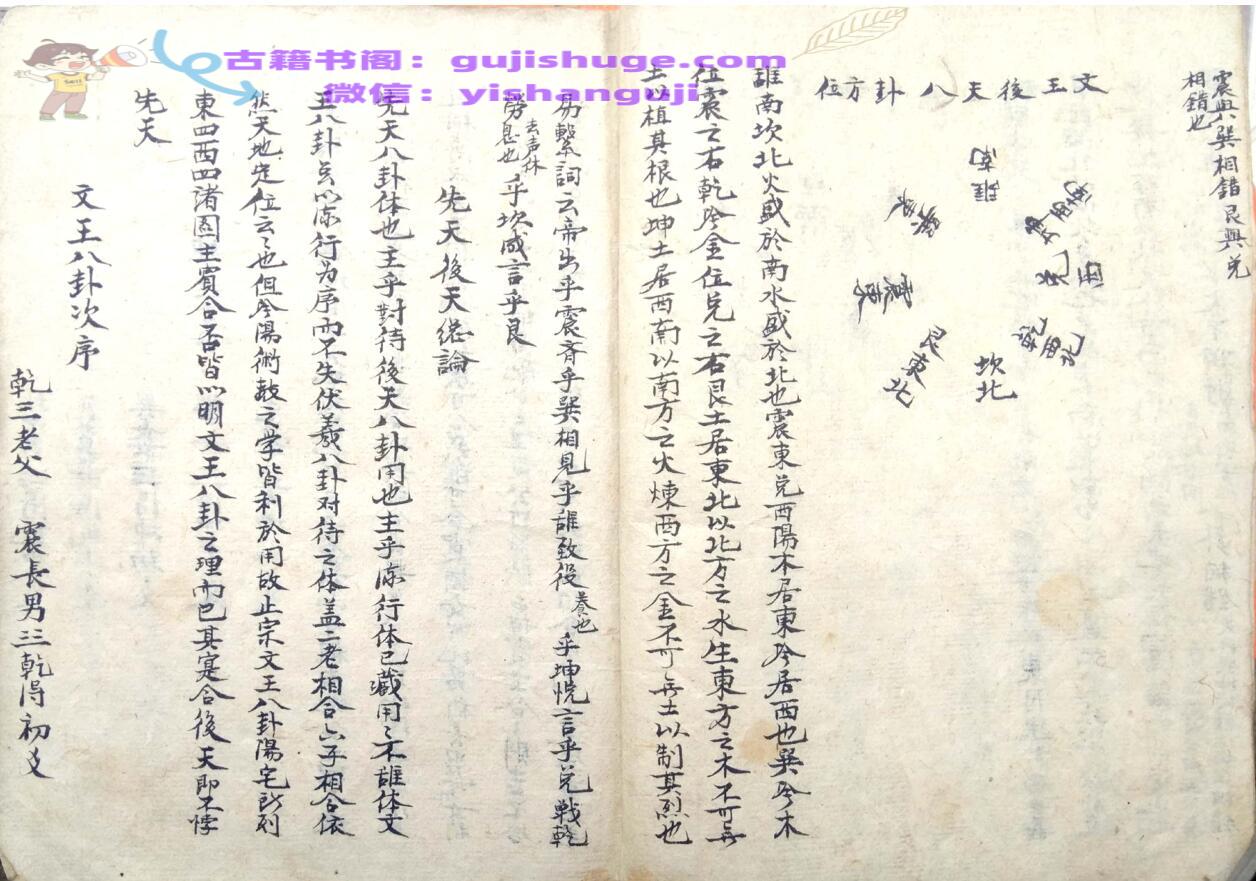 古籍书阁：gujishuge.com
微信：yishanguji
震與巽相錯艮與兑
相錯也
文王後天八卦方位
離南
坤西南
兑西
乾西北
坎北
艮東北
震東
巽東
離南坎北火盛於南水盛於北也震東兑西陽木居東阴居西也巽阴木
位震之右乾阴金位兑之右艮土居東北以北方之水生東方之木不可無
土以植其根也坤土居西南以南方之火煉西方之金不可無土以制其烈也
易繫詞云帝出乎震齊乎巽相見乎離致役養也乎坤悦言乎兑戰乾
勞去声休息也乎坎成言乎艮
先天後天總論
先天八卦体也主乎對待後天八卦用也主乎流行体已藏用〻不離体文
王八卦玄以流行为序而不失伏羲八卦对待之体盖二老相合六子相合依
然天地定位云〻也但今陽術数之学皆利於用故止宗文王八卦陽宅所列
東四西四諸圖主賓合否皆以明文王八卦之理而已其寔合後天即不悖
先天
文王八卦次序
乾三老父 震長男三乾得初爻